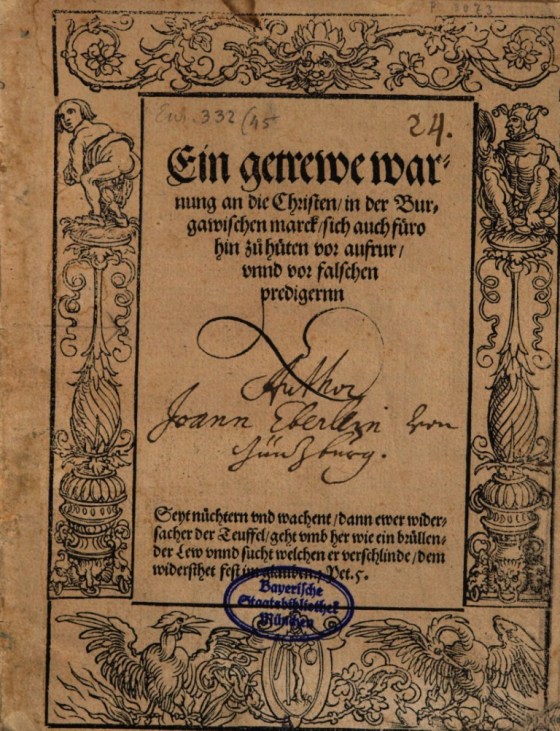 P. 3073
332 (45
24.
Ein getrewe war⸗
nung an die Christen/ in der Bur⸗
gawischen marck/ sich auch füro
hin zů hüten vor aufrur/
vnnd vor falschen
predigernn
Author
Joann Eberlin von
Günzburg.
Seyt nüchtern vnd wachent/ dann ewer wider⸗
sacher der Teuffel/ geht vmb her wie ein brüllen⸗
der Lew vnnd sucht welchen er verschlinde/ dem
widersthet fest im glauben 1. Pet. 5.
Bayerische
Staatsbibliothek
München